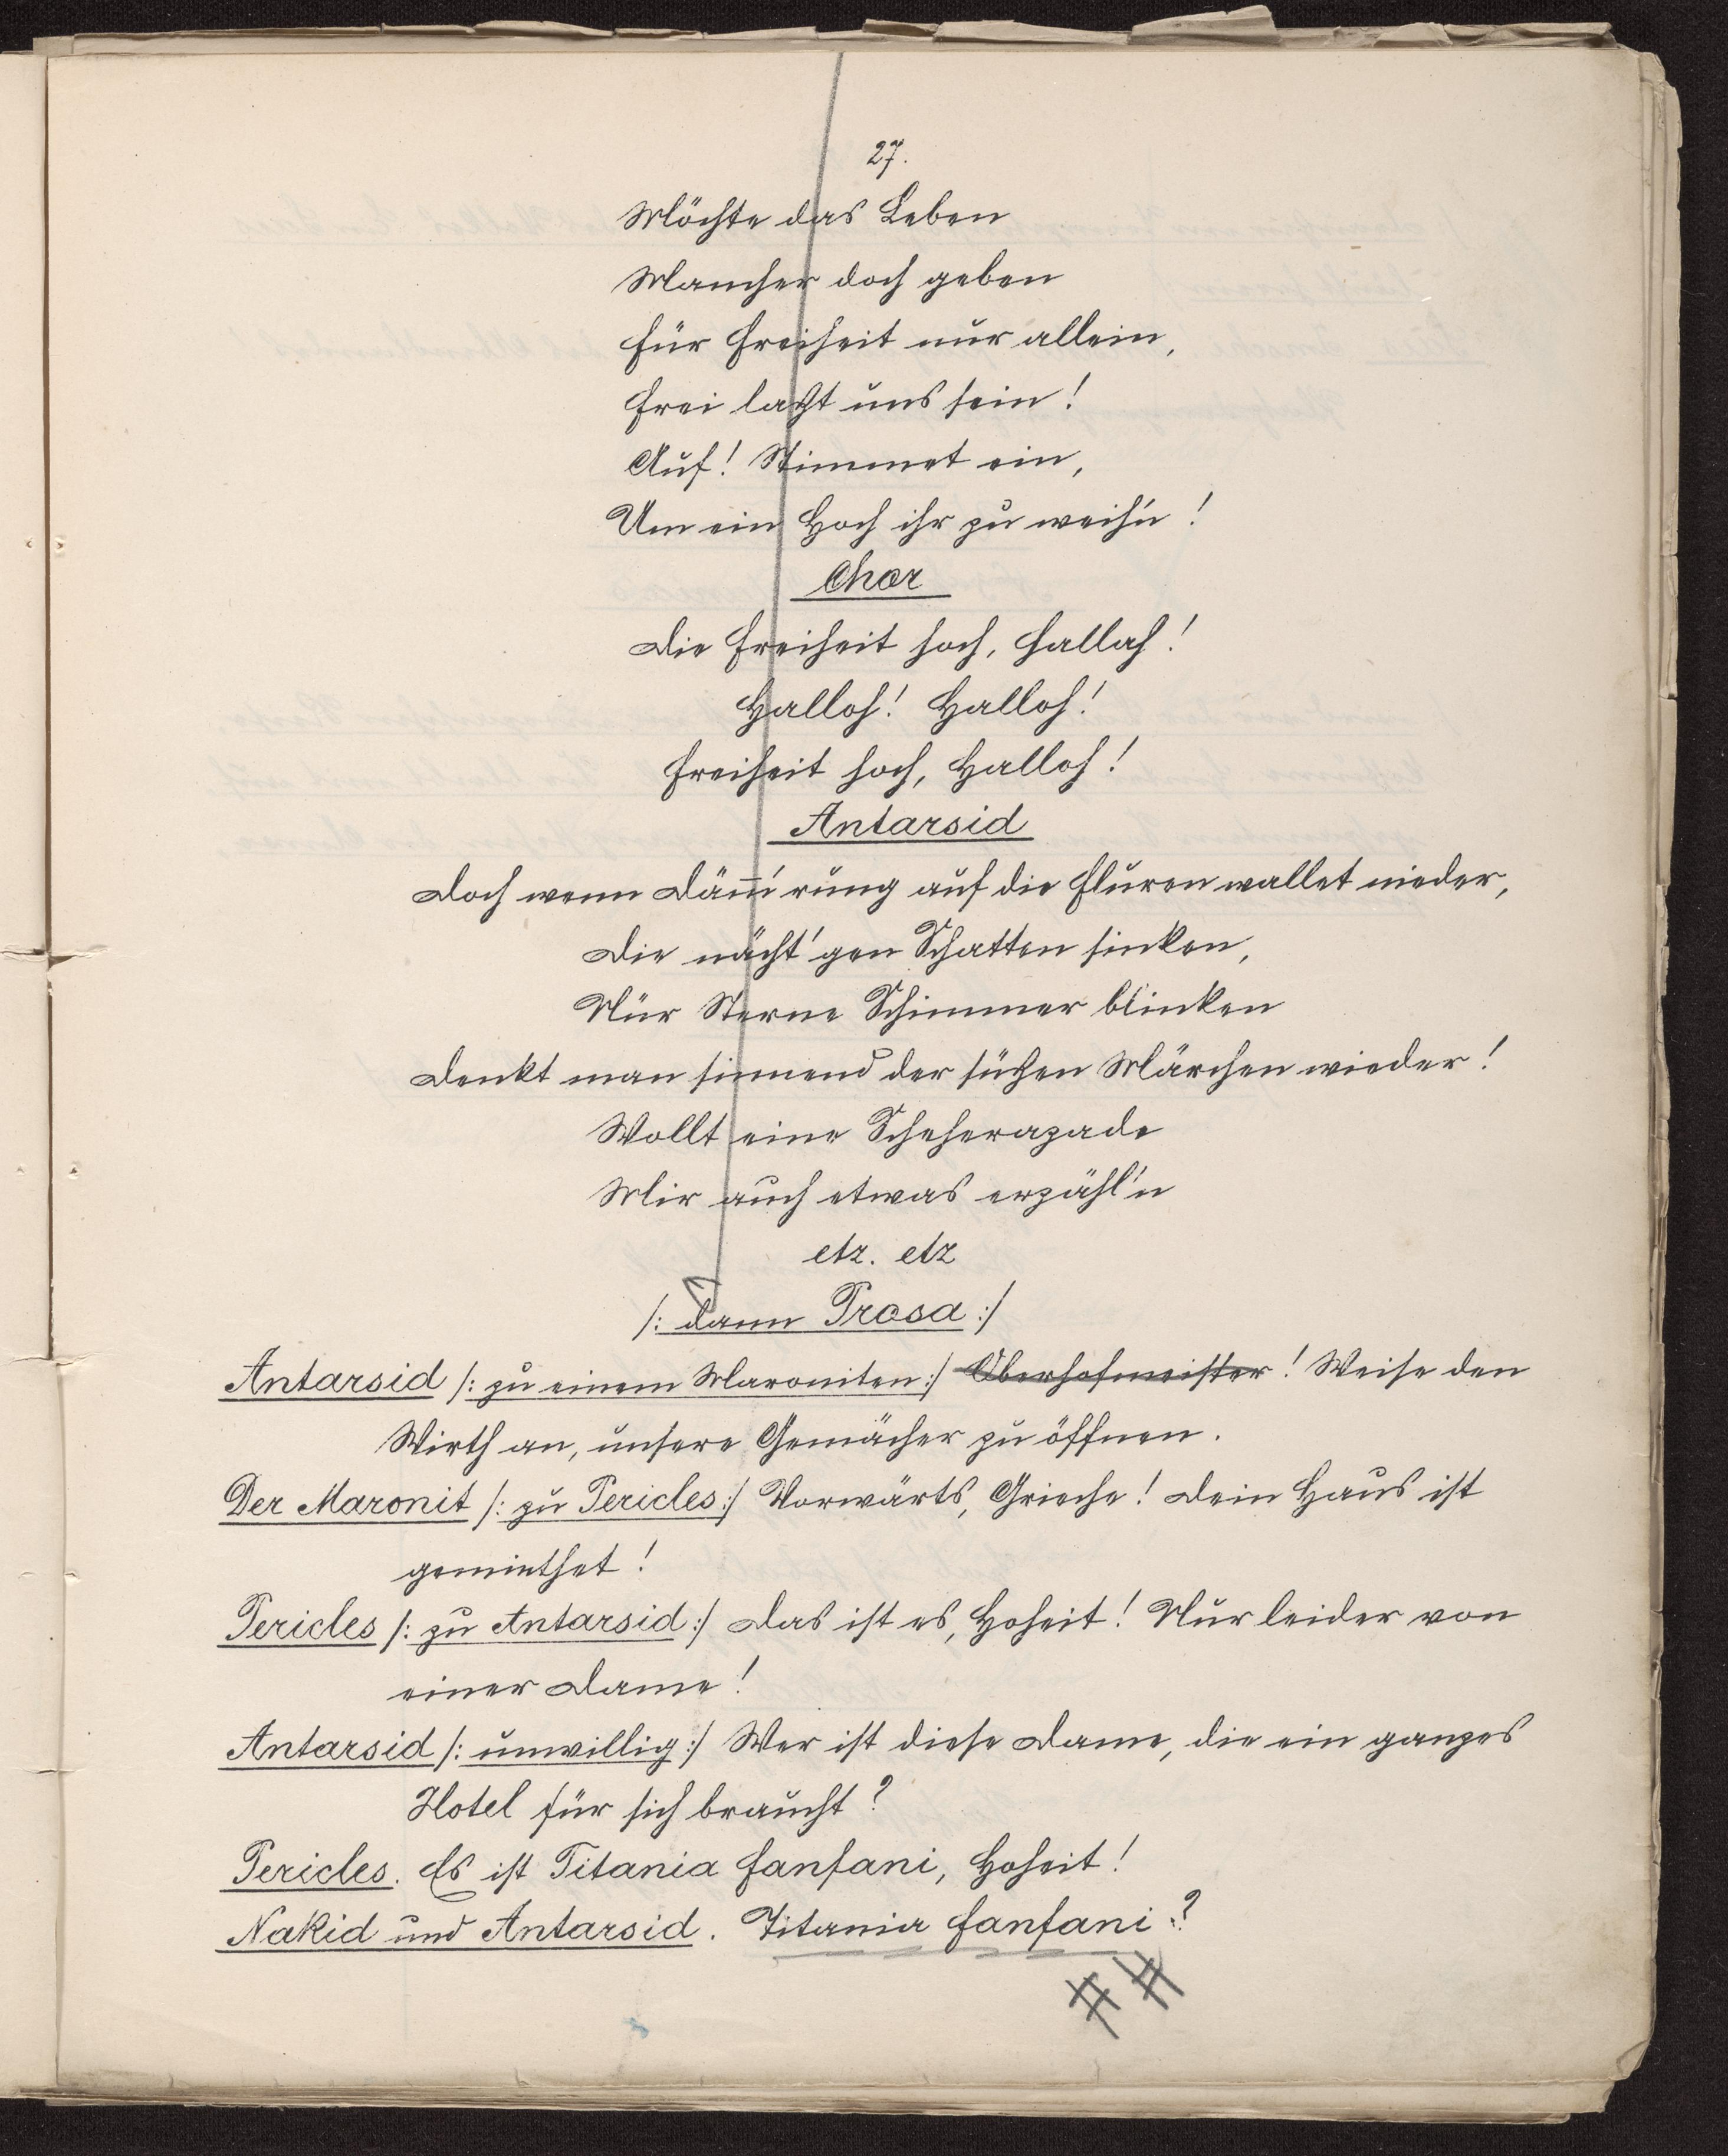 27.
Möchte das Leben
Mancher doch geben
Für Freiheit nur allein,
Frei laßt uns sein!
Auf! Stimmet ein,
Um ein Hoch ihr zu weih'n!
Chor
Die Freiheit hoch, Hallah!
Halloh! Halloh!
Freiheit hoch, Halloh!
Antarsid
Doch wenn Däm̅'rung auf die Fluren wallet nieder,
Die nächt'gen Schatten sinken,
Nur Sterne Schimmer blinken
Denkt man sinnend der süßen Märchen wieder!
Wollt eine Scheherazade
Mir auch etwas erzähl'n
etz. etz
/: dann Prosa :/
Antarsid /: zu einem Maroniten :/ Oberhofmeister! Weise den
Wirth an, unsere Gemächer zu öffnen.
Der Maronit /: zu Pericles :/ Vorwärts, Grieche! Dein Haus ist
gemiethet!
Pericles /: zu Antarsid :/ Das ist es, Hoheit! Nur leider von
einer Dame!
Antarsid /: unwillig :/ Wer ist diese Dame, die ein ganzes
Hotel für sich braucht?
Pericles. Es ist Titania Fanfani, Hoheit!
Nakid und Antarsid. Titania Fanfani?